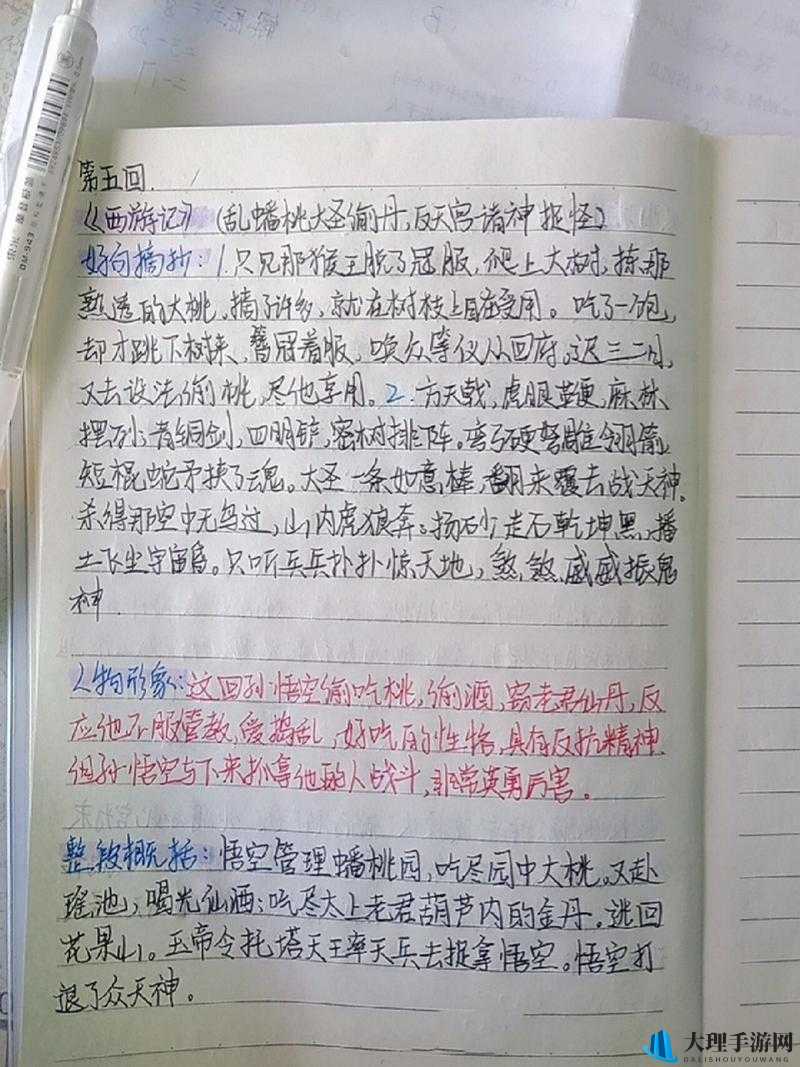 第五回.
《西游记》(乱蟠桃大圣偷丹,反天宫诸神捉怪)
好句摘抄:1.只见那猴王脱了冠服,爬上大树,拣那
熟透的大桃,摘了许多,就在树枝上自在受用。吃了一饱,
却才跳下树来,簪冠着服,唤众等仪从回府。迟三二日,
又去设法偷桃,尽他享用。2.方天戟,虎眼鞭,麻林
摆列;青铜剑,四明铲,密树排阵。弯弓硬弩雕翎箭,
短棍蛇矛挟了魂。大圣一条如意棒,翻来覆去战天神。
杀得那空中无鸟过,山内虎狼奔。扬砂走石乾坤黑,播
土飞尘宇宙昏。只听兵兵扑扑惊天地,煞煞威威振鬼
神.
人物形象:这回孙悟空偷吃桃,偷酒,窃老君仙丹,反
应他不服管教,爱捣乱,好吃的性格,具有反抗精神
但孙悟空与下来抓拿他的人战斗,非常英勇厉害。
整段概括:悟空管理蟠桃园,吃尽园中大桃。又赴
瑶池,喝光仙酒;吃尽太上老君葫芦内的金丹。逃回
花果山。玉帝令托塔天王率天兵去捉拿悟空。悟空打
退了众天神。
BM-943
大理手游网
DALISHOUYOUWANG